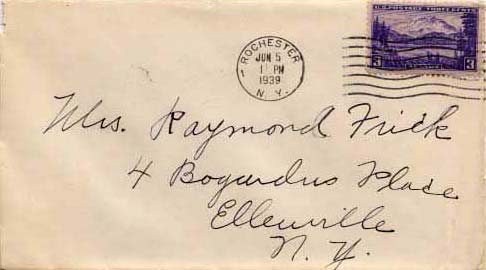 U.S. POSTAGE THREE CENTS
3 3
ROCHESTER
JUN 5
1 PM
1939
N. Y.
Mrs. Raymond Frick
4 Bogardus Place
Ellenville
N. Y.